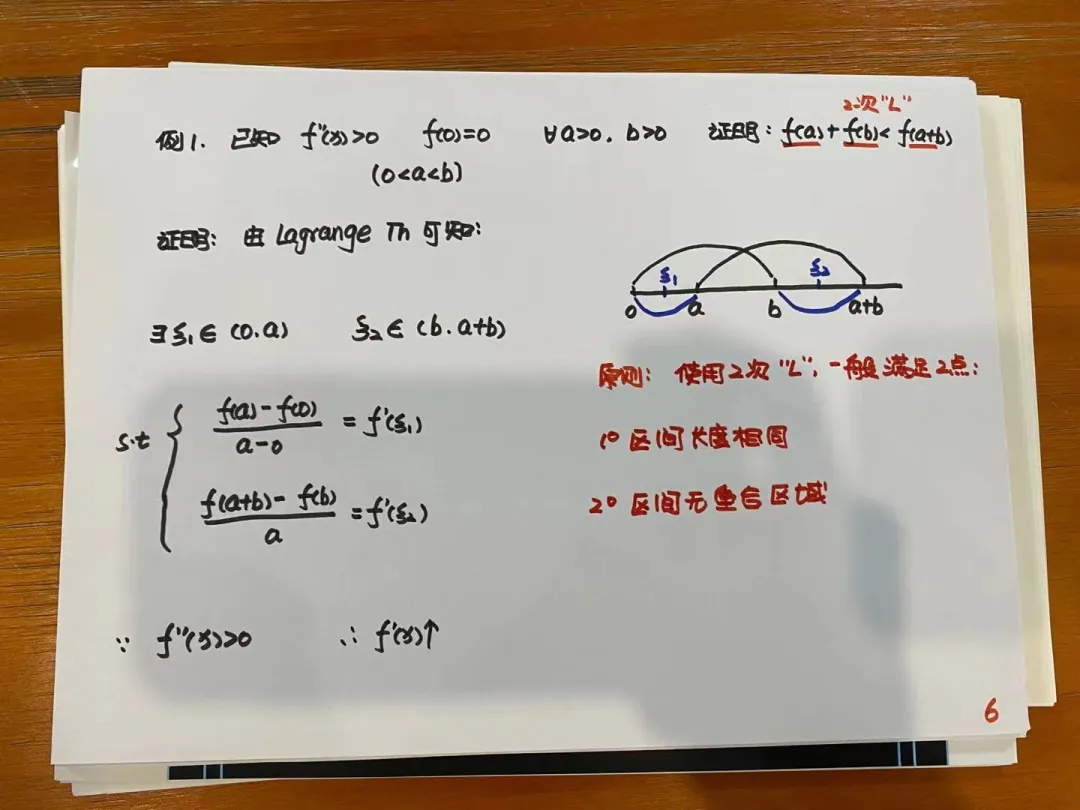 2次"L"
例1. 已知 f''(x)>0 f(0)=0 ∀a>0, b>0 证明: f(a)+f(b)<f(a+b)
(0<a<b)
证明: 由 Lagrange Th 可知:
ξ₁ ξ₂
0 a b a+b
∃ξ₁∈(0.a) ξ₂∈(b.a+b)
原则: 使用2次"L", 一般满足2点:
s.t { (f(a)-f(0))/(a-0) = f'(ξ₁)
1° 区间长度相同
(f(a+b)-f(b))/a = f'(ξ₂)
2° 区间无重合区域
∵ f''(x)>0 ∴ f'(x)↑
6